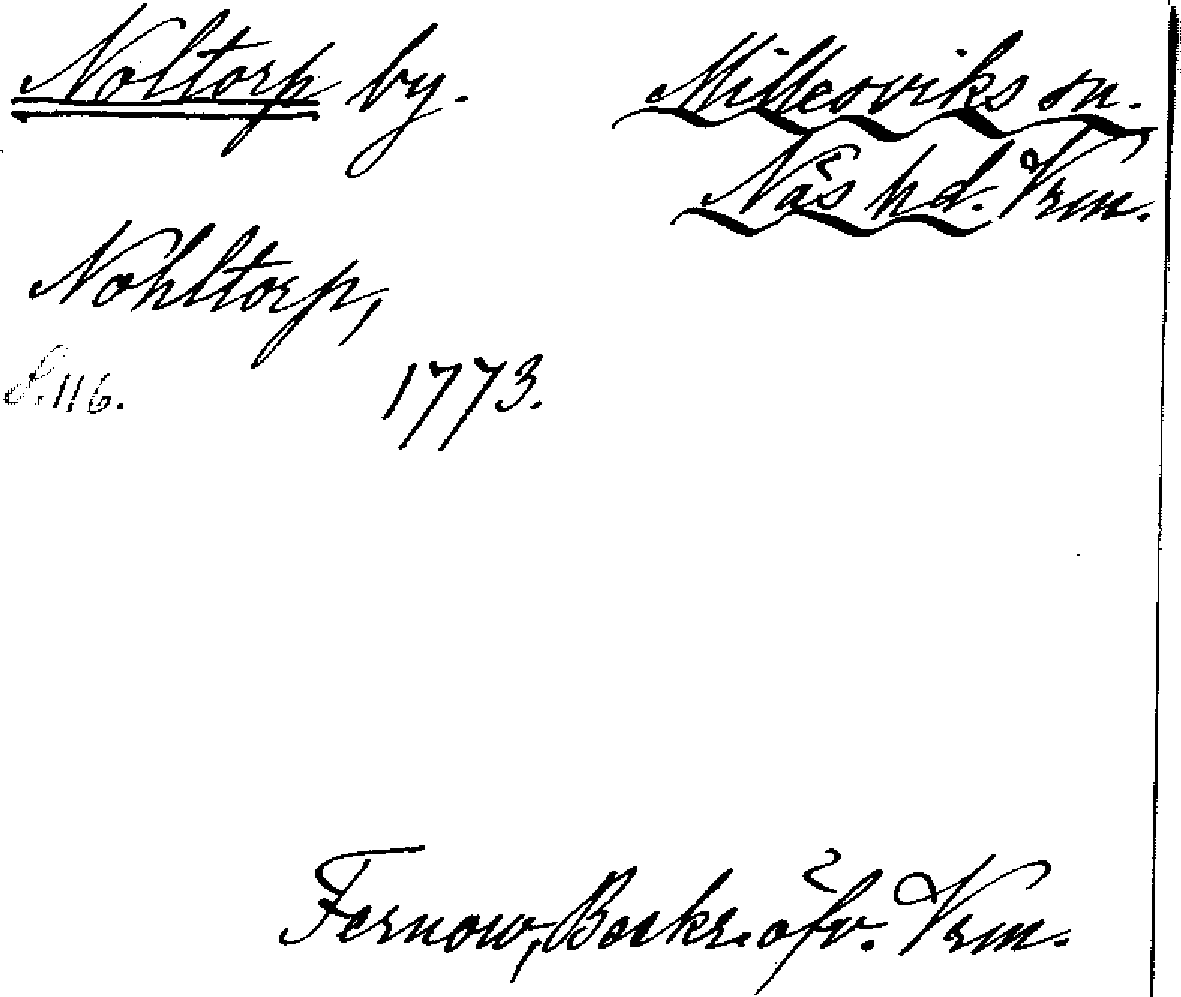 Noltorp by. Millesviks sn.
Näs hd. Vrm.
Nohltorp,
s. 116. 1773.
Fernow, Beskr. öfv. Vrm.